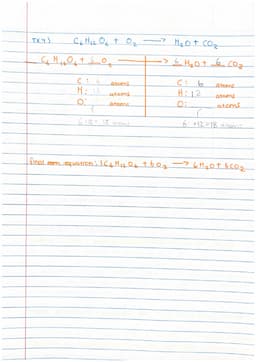 C₆H₁₂O₆ + O₂ → H₂O + CO₂
C₆H₁₂O₆ + 6 O₂ → 6 H₂O + 6 CO₂
C: atoms C: 6 atoms
H: atoms H: 12 atoms
O: atoms O: atoms
6 +12=18 atoms
equation: 1C₆H₁₂O₆ + 6O₂ → 6H₂O + 6CO₂